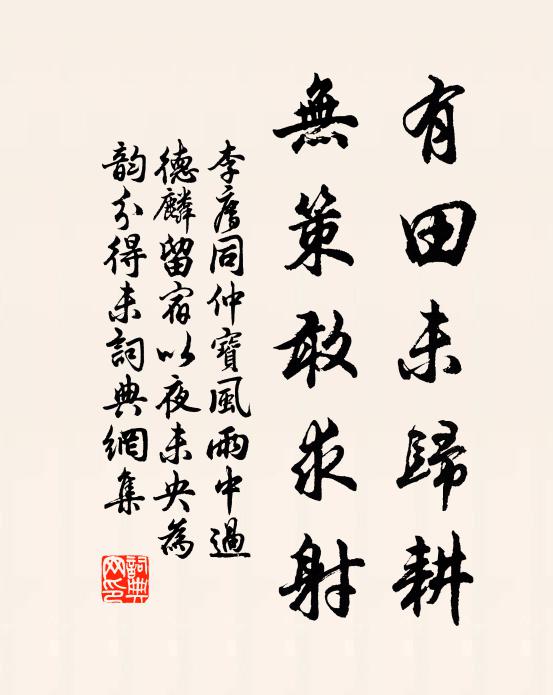 有田未歸耕
無策敢求射
李廌同仲寶風雨中過
德麟留宿以夜未央為
韵分得未詞典網集
詞典
网印